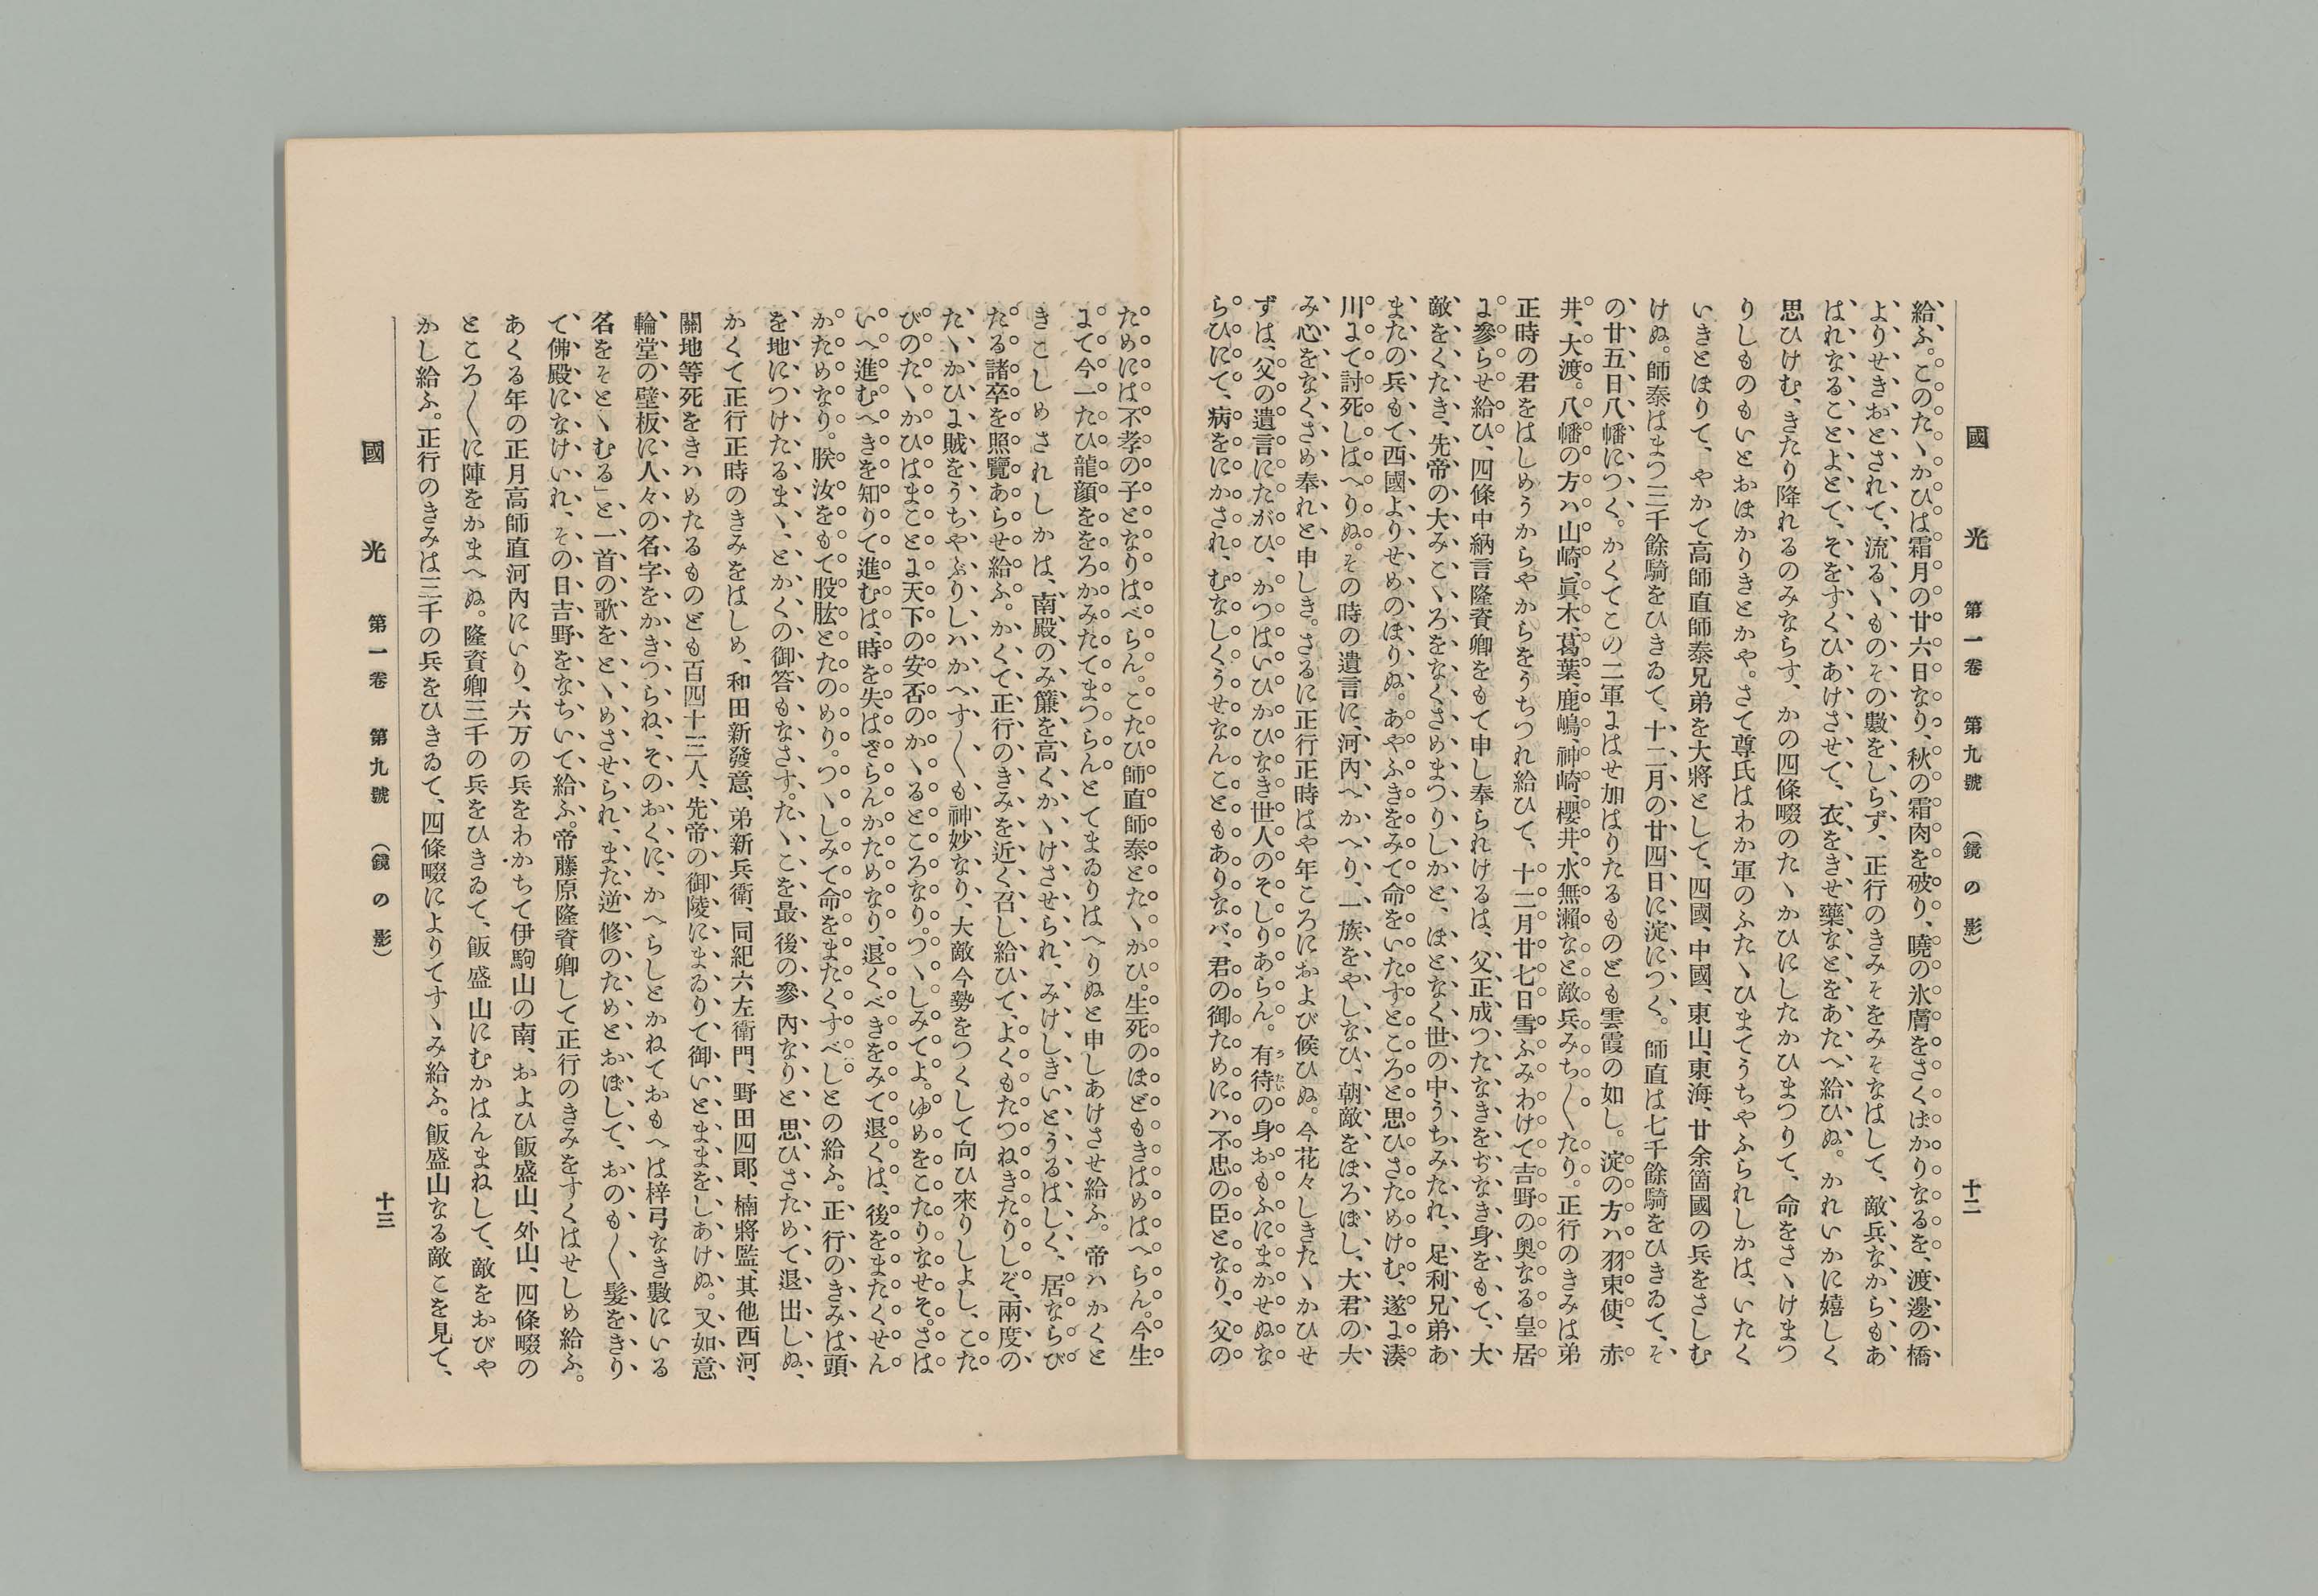 國光 第一卷 第九號 (鏡の影) 十二
給ふ。このたヽかひは霜月の廿六日なり、秋の霜肉を破り、曉の氷膚をさくばかりなるを、渡邊の橋
よりせきおとされて、流るヽものその數をしらず、正行のきみそをみそなはして、敵兵なからもあ
はれなることよとて、そをすくひあけさせて、衣をきせ藥なとをあたへ給ひぬ。かれいかに嬉しく
思ひけむ、きたり降れるのみならす、かの四條畷のたヽかひにしたかひまつりて、命をさヽけまつ
りしものもいとおほかりきとかや。さて尊氏はわか軍のふたヽひまてうちやふられしかは、いたく
いきとほりて、やかて高師直師泰兄弟を大將として、四國、中國、東山、東海、廿余箇國の兵をさしむ
けぬ。師泰はまつ三千餘騎をひきゐて、十二月の廿四日に淀につく。師直は七千餘騎をひきゐて、そ
の廿五日八幡につく。かくてこの二軍にはせ加はりたるものども雲霞の如し。淀の方ハ羽束使、赤
井、大渡。八幡の方ハ山崎、眞木、葛葉、鹿嶋、神崎、櫻井、水無瀨なと敵兵みち〱たり。正行のきみは弟
正時の君をはしめうからやからをうちつれ給ひて、十二月廿七日雪ふみわけて吉野の奧なる皇居
に參らせ給ひ、四條中納言隆資卿をもて申し奉られけるは、父正成つたなきをぢなき身をもて、大
敵をくたき、先帝の大みこヽろをなくさめまつりしかと、ほとなく世の中うちみたれ、足利兄弟あ
またの兵もて西國よりせめのほりぬ。あやふきをみて命をいたすところと思ひさためけむ、遂に湊
川にて討死しはへりぬ。その時の遺言に、河內へかへり、一族をやしなひ、朝敵をほろぼし、大君の大
み心をなくさめ奉れと申しき。さるに正行正時はや年ころにおよび候ひぬ。今花々しきたヽかひせ
ずは、父の遺言にたがひ、かつはいひかひなき世人のそしりあらん。有待の身おもふにまかせぬな
らひにて、病をにかされ、むなしくうせなんこともありなバ、君の御ためにハ不忠の臣となり、父の
ためには不孝の子となりはべらん。こたひ師直師泰とたヽかひ。生死のほどもきはめはへらん。今生
にて今一たひ龍顔ををろかみたてまつらんとてまゐりはへりぬと申しあけさせ給ふ。帝ハかくと
きこしめされしかは、南殿のみ簾を高くかヽけさせられ、みけしきいとうるはしく、居ならび
たる諸卒を照覽あらせ給ふ。かくて正行のきみを近く召し給ひて、よくもたつねきたりしぞ、兩度の
たヽかひに賊をうちやぶりしハかへす〱も神妙なり、大敵今勢をつくして向ひ來りしよし、こた
びのたヽかひはまことに天下の安否のかヽるところなり。つヽしみてよ。ゆめをこたりなせそ。さは
いへ進むへきを知りて進むは、時を失はざらんかためなり、退くべきをみて退くは、後をまたくせん
かためなり。朕汝をもて股肱とたのめり。つヽしみて命をまたくすべしとの給ふ。正行のきみは頭
を地につけたるまヽ、とかくの御答もなさす。たヽこを最後の參內なりと思ひさためて退出しぬ、
かくて正行正時のきみをはしめ、和田新發意、弟新兵衛、同紀六左衛門、野田四郞、楠將監、其他西河、
關地等死をきハめたるものども百四十三人、先帝の御陵にまゐりて御いとままをしあけぬ。又如意
輪堂の壁板に人々の名字をかきつらね、そのおくに、かへらしとかねておもへは梓弓なき數にいる
名をそとヽむる」と、一首の歌をとヽめさせられ、また逆修のためとおぼして、おのも〱髮をきり
て佛殿になけいれ、その日吉野をなちいて給ふ。帝藤原隆資卿して正行のきみをすくはせしめ給ふ。
あくる年の正月高師直河內にいり、六万の兵をわかちて伊駒山の南、および飯盛山、外山、四條畷の
ところ〱に陣をかまへぬ。隆資卿三千の兵をひきゐて、飯盛山にむかはんまねして、敵をおびや
かし給ふ。正行のきみは三千の兵をひきゐて、四條畷によりてすヽみ給ふ。飯盛山なる敵こを見て、
國光 第一卷 第九號 (鏡の影) 十三